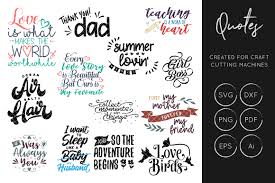 Love
is what
MAKES THE
WORLD
worthwhile
THANK you
dad
TEACHING
is a work of
HEART
summer
lovin'
Every
Love Story is
Beautiful
But Ours is
My
Girl
Boss
collect
moments
my
mother
my
FOREVER
friend
Was
Always
You
Husband
AND
SO THE
ADVENTURE
BEGINS
LOVE
BIRDS
Quotes
CREATED FOR CRAFT
CUTTING MACHINES
SVG
DXF
PNG
PDF
EPS
Ai